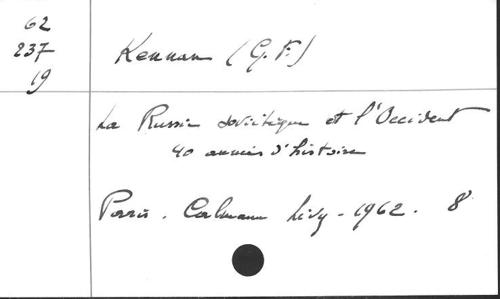 62
237
19
Kennan (G. F.)
La Russie soviétique et l'Occident
40 années d'histoire
Paris. Calmann Lévy - 1962. 8°